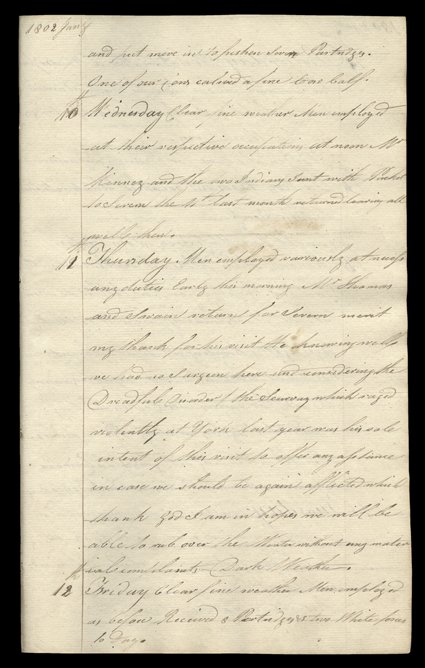 1802 Jan
and put more in to fishen Seven Partridges.
One of our cows calved a fine Cow Calf.
10 Wednesday Clear fine weather Men employed
at their respective occupations at noon Mr
Kennez and the two Indians Sent with Packet
to Severn the 4th last month returned leaving all
well there.
11 Thursday Men employed variously at necess
ary duties Early this morning Mr Thomas
and Swain return for Severn merit
my thank for his visit He knowing well
we had no Surgeon here and considering the
Dreadful disorder the Scurvey which raged
violently at York last year was his sole
intent of this visit to offer any assistance
in case we should be again afflicted which
thank God I am in hopes we will be
able to rub over the Winter without any mater
ial complaints Dark Weather.
12 Friday Clear fine weather Men employed
as before Received 8 Partridges & two White foxes
to Day.